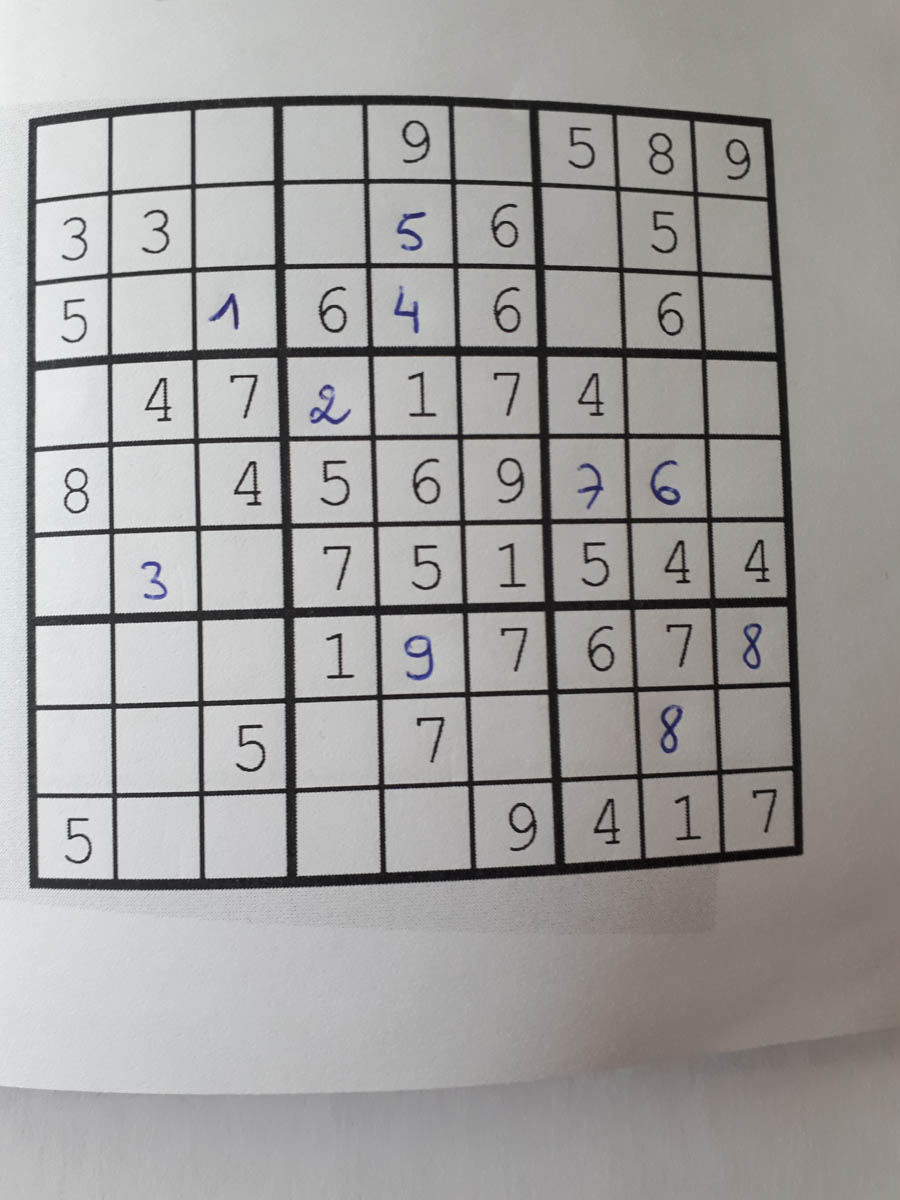 9 5 8 9
3 3 5 6 5
5 1 6 4 6 6
4 7 2 1 7 4
8 4 5 6 9 7 6
3 7 5 1 5 4 4
1 9 7 6 7 8
5 7 8
5 9 4 1 7